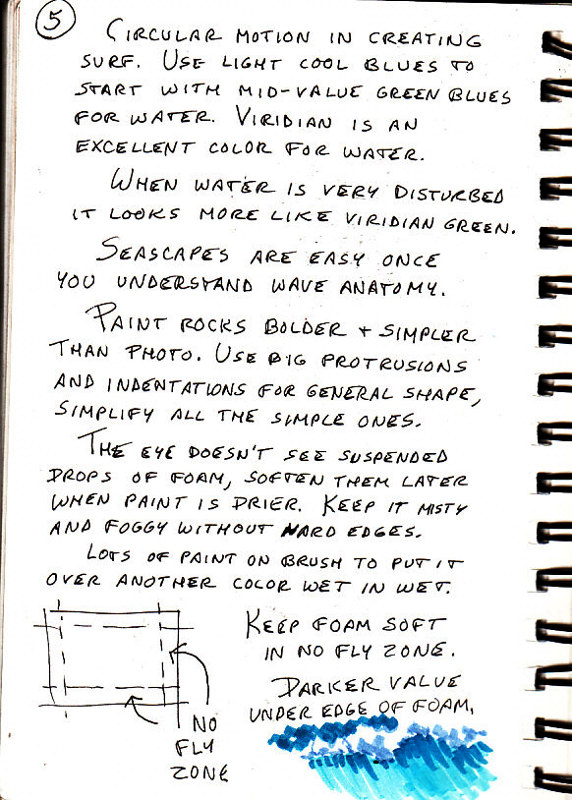 5
CIRCULAR MOTION IN CREATING
SURF. USE LIGHT COOL BLUES TO
START WITH MID-VALUE GREEN BLUES
FOR WATER. VIRIDIAN IS AN
EXCELLENT COLOR FOR WATER.
WHEN WATER IS VERY DISTURBED
IT LOOKS MORE LIKE VIRIDIAN GREEN.
SEASCAPES ARE EASY ONCE
YOU UNDERSTAND WAVE ANATOMY.
PAINT ROCKS BOLDER + SIMPLER
THAN PHOTO. USE BIG PROTRUSIONS
AND INDENTATIONS FOR GENERAL SHAPE,
SIMPLIFY ALL THE SIMPLE ONES.
THE EYE DOESN'T SEE SUSPENDED
DROPS OF FOAM, SOFTEN THEM LATER
WHEN PAINT IS DRIER. KEEP IT MISTY
AND FOGGY WITHOUT HARD EDGES.
LOTS OF PAINT ON BRUSH TO PUT IT
OVER ANOTHER COLOR WET IN WET.
KEEP FOAM SOFT
IN NO FLY ZONE.
DARKER VALUE
UNDER EDGE OF FOAM.
NO
FLY
ZONE